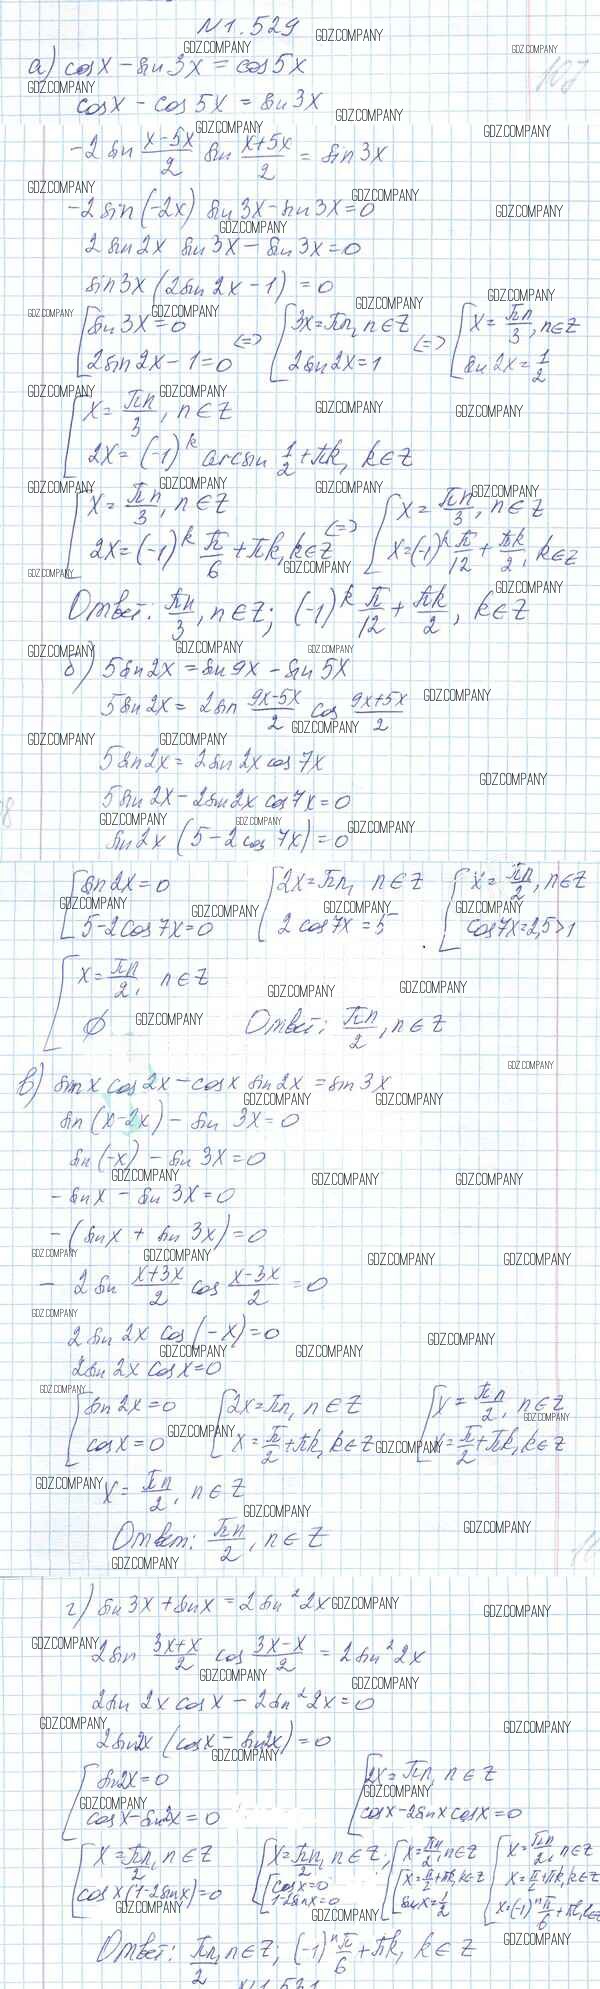 N1.529
а) cosx - sin3x = cos5x
cosx - cos5x = sin3x
-2sin (x-5x)/2 sin (x+5x)/2 = sin3x
-2sin(-2x) sin3x - sin3x = 0
2sin2x sin3x - sin3x = 0
sin3x(2sin2x - 1) = 0
[sin3x = 0 <=> [3x = πn, n∈Z <=> [x = πn/3, n∈Z
2sin2x - 1 = 0 2sin2x = 1 sin2x = 1/2
[x = πn/3, n∈Z
2x = (-1)^k arcsin 1/2 + πk, k∈Z
[x = πn/3, n∈Z <=> [x = πn/3, n∈Z
2x = (-1)^k π/6 + πk, k∈Z x = (-1)^k π/12 + πk/2, k∈Z
Ответ: πn/3, n∈Z; (-1)^k π/12 + πk/2, k∈Z
б) 5sin2x = sin9x - sin5x
5sin2x = 2sin (9x-5x)/2 cos (9x+5x)/2
5sin2x = 2sin2x cos7x
5sin2x - 2sin2x cos7x = 0
sin2x(5 - 2cos7x) = 0
[sin2x = 0 [2x = πn, n∈Z [x = πn/2, n∈Z
5 - 2cos7x = 0 2cos7x = 5 cos7x = 2,5 > 1
[x = πn/2, n∈Z
∅ Ответ: πn/2, n∈Z
в) sinx cos2x - cosx sin2x = sin3x
sin(x-2x) - sin3x = 0
sin(-x) - sin3x = 0
-sinx - sin3x = 0
-(sinx + sin3x) = 0
-2sin (x+3x)/2 cos (x-3x)/2 = 0
2sin2x cos(-x) = 0
2sin2x cosx = 0
[sin2x = 0 [2x = πn, n∈Z [x = πn/2, n∈Z
cosx = 0 x = π/2 + πk, k∈Z x = π/2 + πk, k∈Z
x = πn/2, n∈Z
Ответ: πn/2, n∈Z
г) sin3x + sinx = 2sin²2x
2sin (3x+x)/2 cos (3x-x)/2 = 2sin²2x
2sin2x cosx - 2sin²2x = 0
2sin2x(cosx - sin2x) = 0
[sin2x = 0 [2x = πn, n∈Z
cosx - sin2x = 0 cosx - 2sinx cosx = 0
[x = πn/2, n∈Z [x = πn/2, n∈Z; [x = πn/2, n∈Z [x = πn/2, n∈Z
cosx(1-2sinx) = 0 [cosx = 0 [x = π/2 + πk, k∈Z x = π/2 + πk, k∈Z
1-2sinx = 0 sinx = 1/2 x = (-1)^n π/6 + πk, k∈Z
Ответ: πn/2, n∈Z; (-1)^n π/6 + πk, k∈Z
GDZ.COMPANY